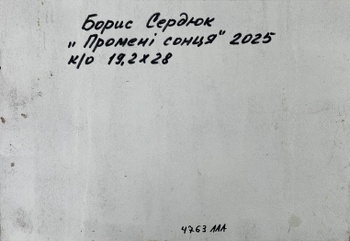 Борис Сердюк
„Промені сонця" 2025
к/о 19,2 х 28
4763 ЛЛА